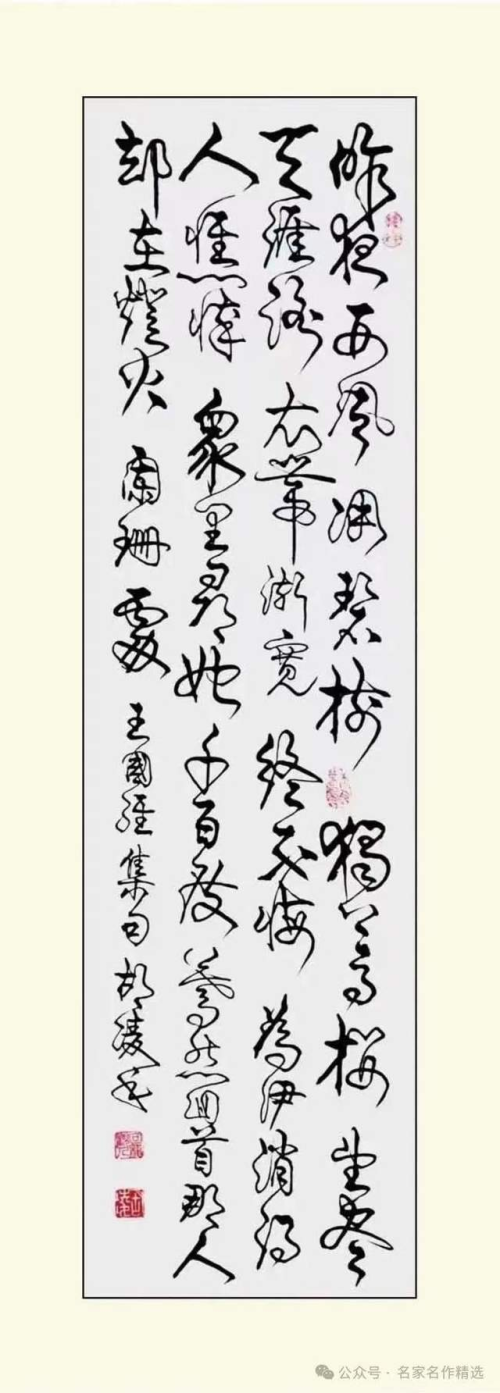 昨夜西风凋碧树 獨上高楼 望尽
天涯路 衣带渐宽 终不悔 為伊消得
人憔悴 众里寻她 千百度 蓦然回首那人
却在燈火 阑珊處 王國維集句 胡凌
公众号·名家名作精选